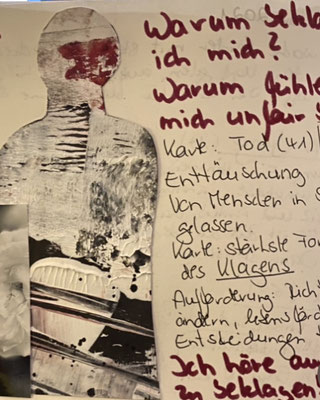 Warum bekla
ich mich?
Warum fühle
mich unfair
Karte: Tod (41)
Enttäuschung
Von Menschen in S
gelassen.
Karte: stärkste For
des Klagens
Aufforderung: Richt
ändern, lebensförd
Entscheidungen
Ich höre au
zu beklagen!